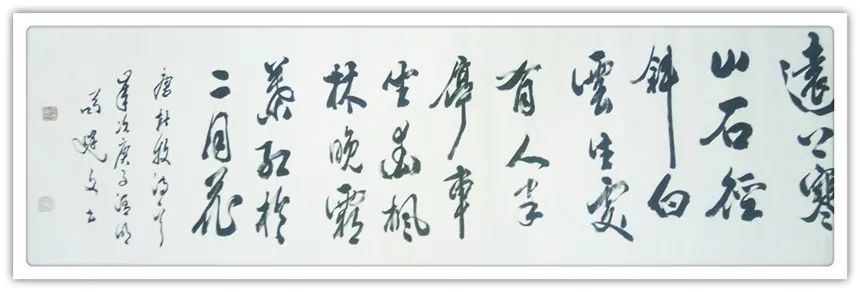 遠上寒
山石徑
斜白
雲生處
有人家
停車
坐愛楓
林晚霜
葉紅於
二月花
唐杜牧詩
歲次庚子清明
文书